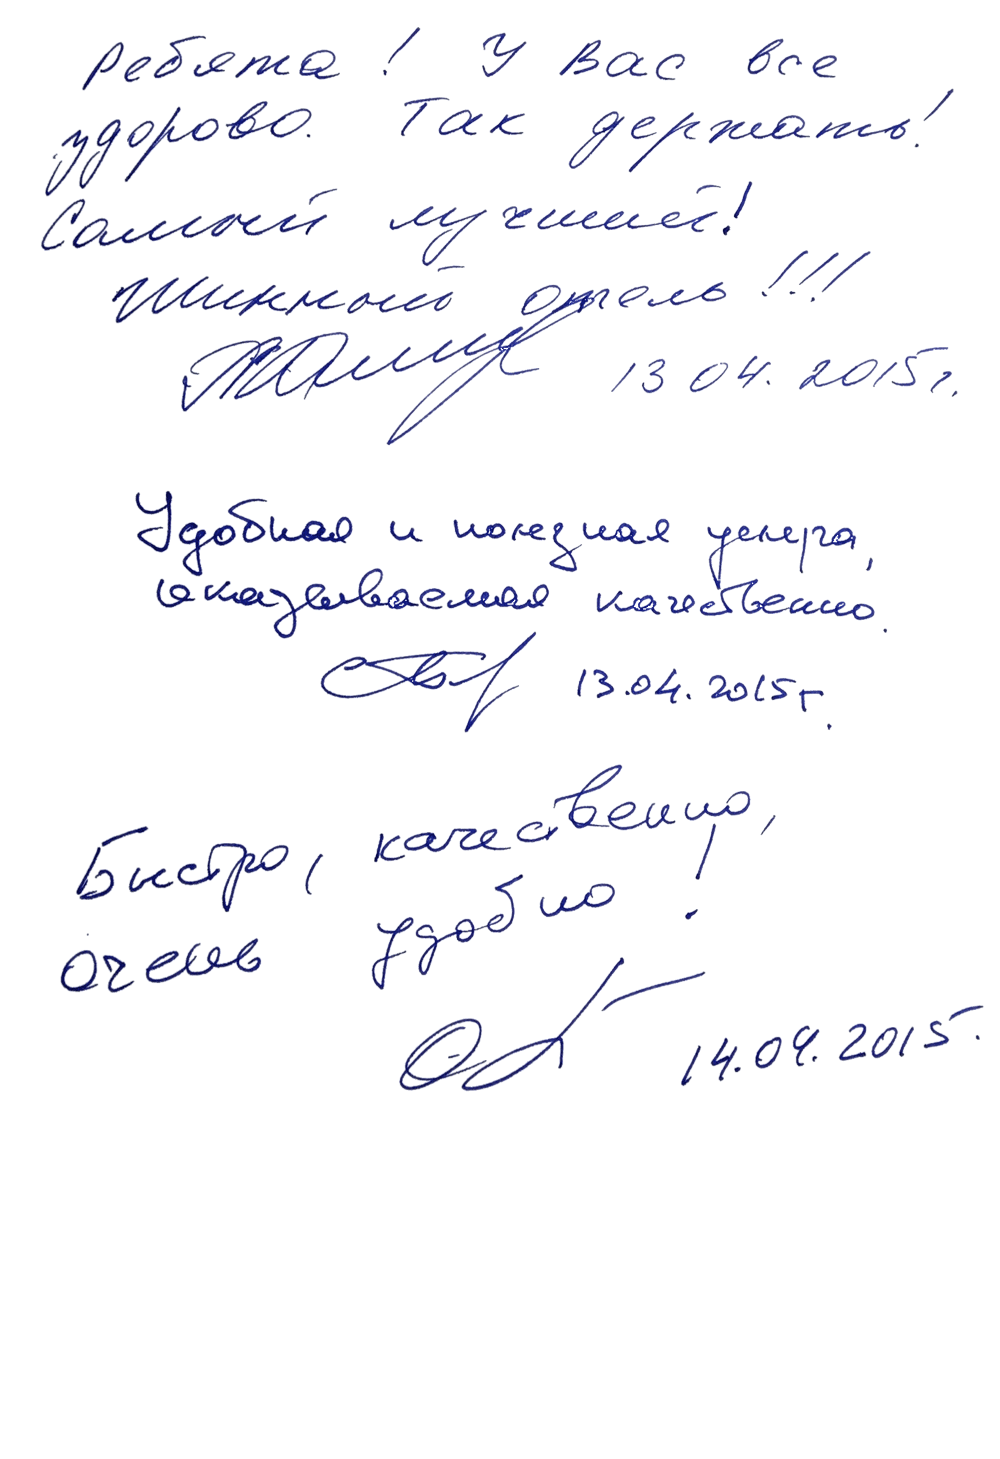 Ребята! У Вас все
здорово. Так держать!
Самый лучший!
Шинный отель!!!
13 04. 2015г.
Удобная и полезная услуга,
оказываемая качественно.
13.04.2015г.
Быстро, качественно,
очень удобно!
14.04.2015.